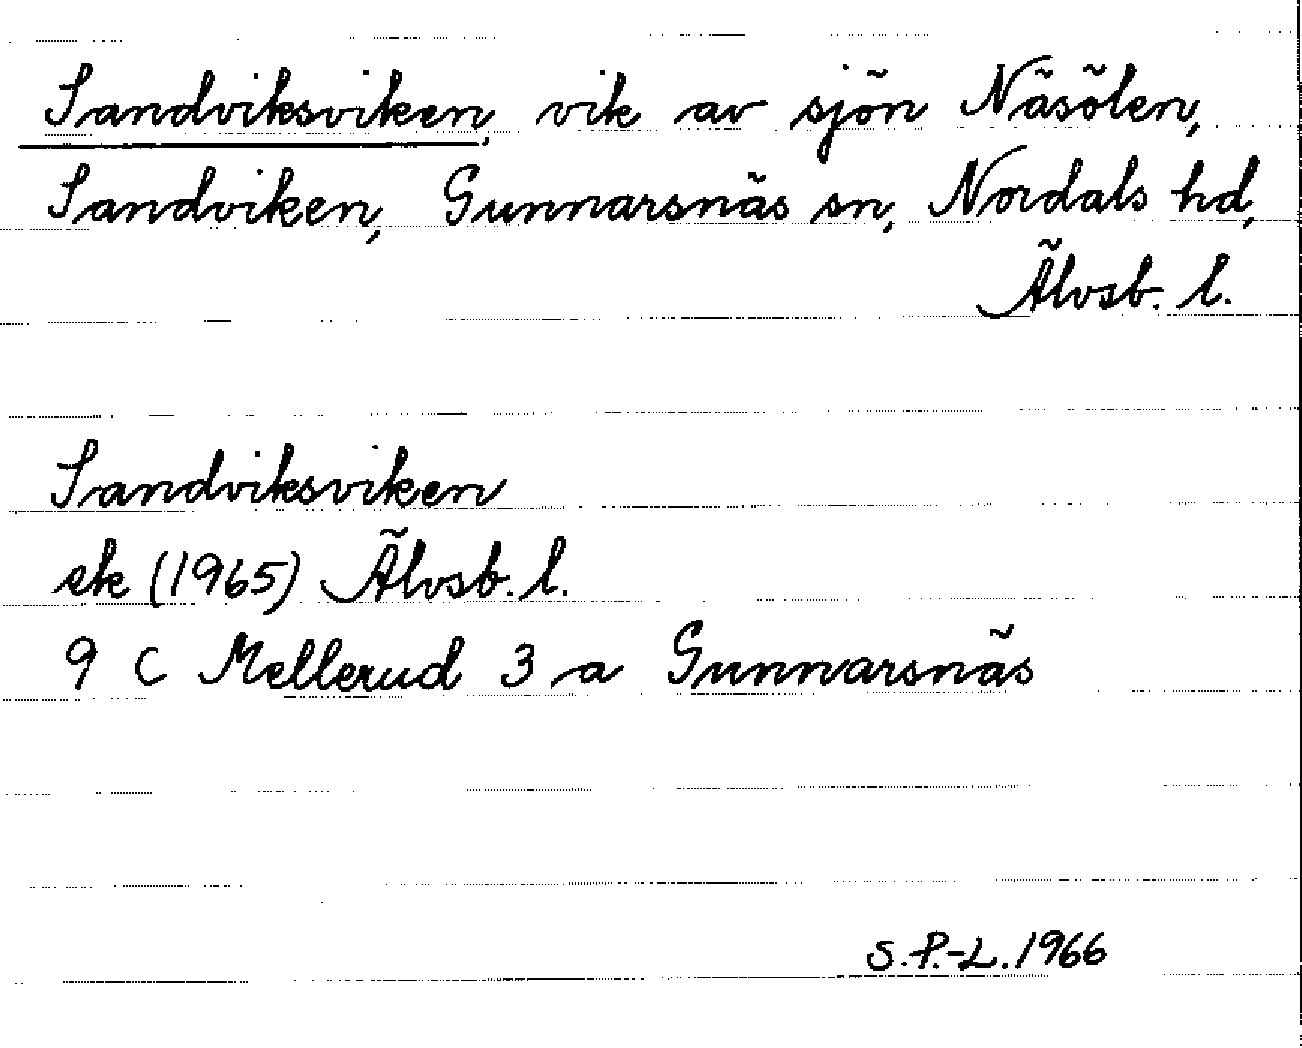 Sandviksviken, vik av sjön Näsölen,
Sandviken, Gunnarsnäs sn, Nordals hd,
Älvsb. l.
Sandviksviken
ek (1965) Älvsb. l.
9 C Mellerud 3 a Gunnarsnäs
S.P.-L. 1966